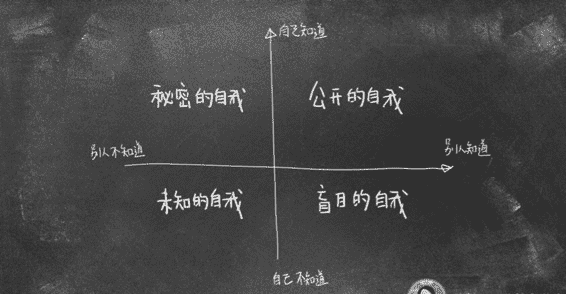 自己知道
秘密的自我 公开的自我
别人不知道 别人知道
未知的自我 盲目的自我
自己不知道